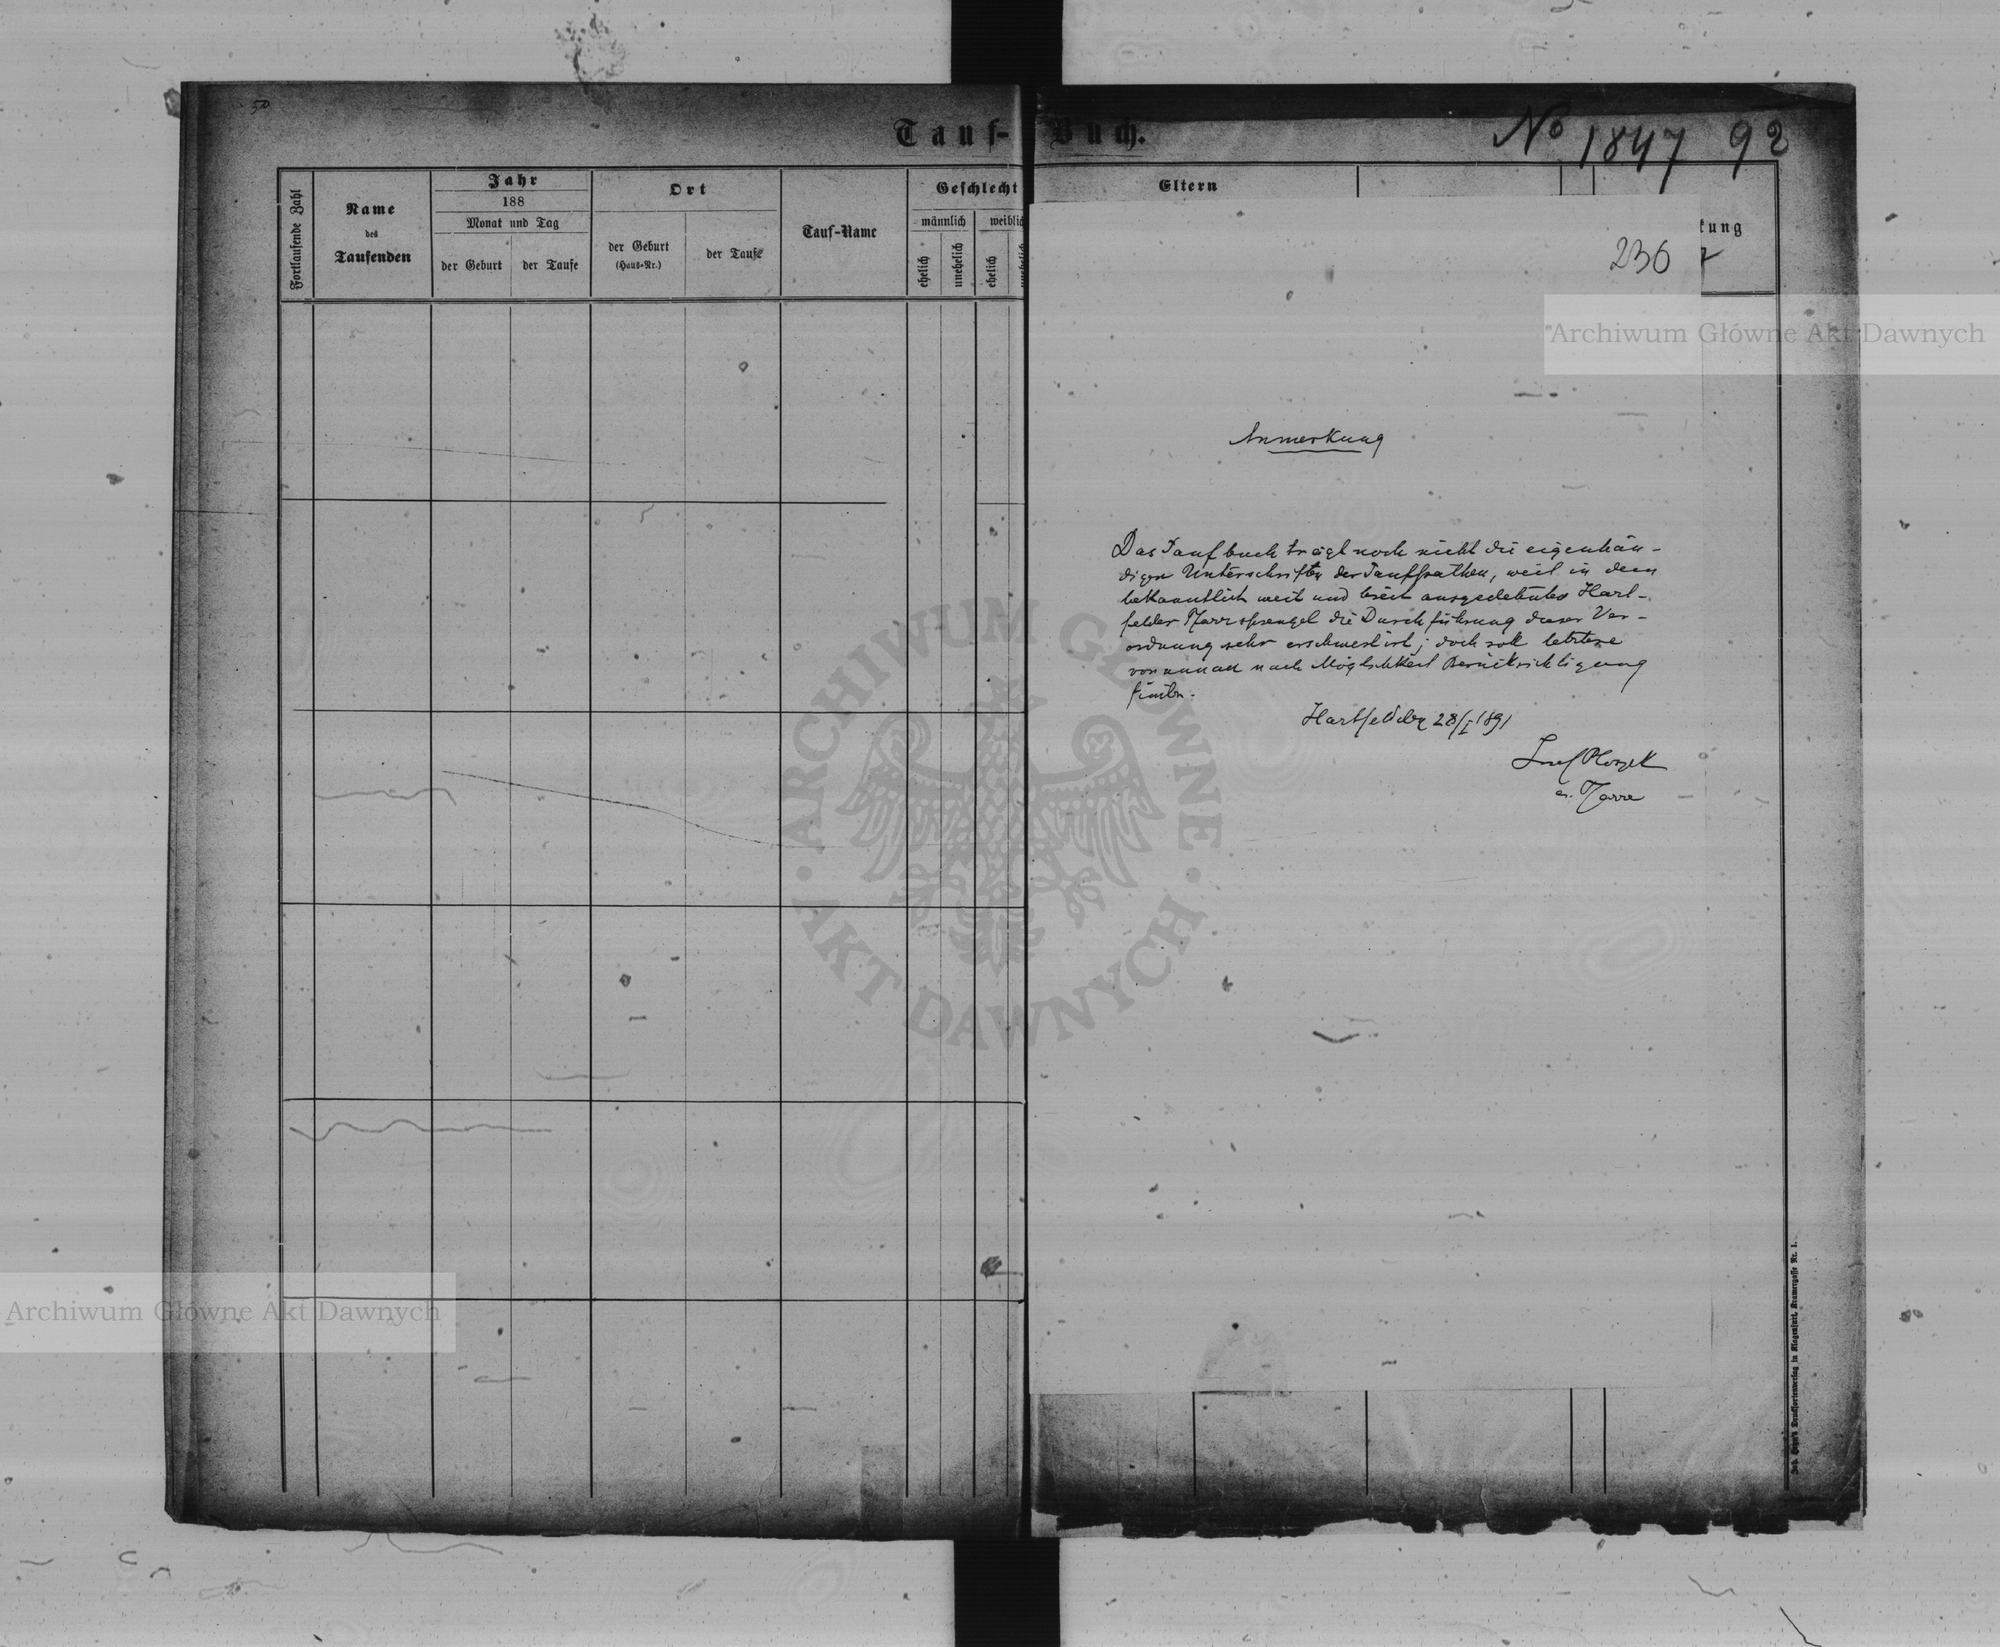 50
Tauf-Buch.
No 1847 92
Fortlaufende Zahl
Name
des
Taufenden
Jahr
188
Monat und Tag
der Geburt
der Taufe
Ort
der Geburt
(Haus-Nr.)
der Taufe
Tauf-Name
Geschlecht
männlich
weiblich
ehelich
unehelich
ehelich
Eltern
kung
236
Archiwum Główne Akt Dawnych
Anmerkung
Das Taufbuch trägt noch nicht die eigenhän-
digen Unterschriften der Taufpathen, weil in dem
bekanntlich weit und breit ausgedehnten Hart-
felder Pfarrsprengel die Durchführung dieser Ver-
ordnung sehr erschwert ist; doch soll letztere
von nun an nach Möglichkeit Berücksichtigung
finden.
Hartfeld den 28/I 1891
Josef
ev. Pfarrer
ARCHIWUM GŁÓWNE AKT DAWNYCH
Archiwum Główne Akt Dawnych